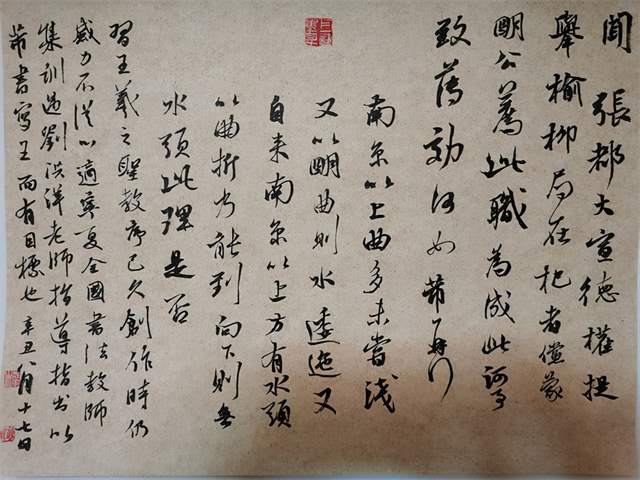 聞張都大宣德權提
舉榆柳局在杞者儻蒙
明公薦此職為成此河事
致薄効何如芾再拜
南京以上曲多未嘗淺
又以明曲則水逶迤又
自来南京以上方有水頭
以曲折乃能到向下則無
水頭此理是否
習王羲之聖教序已久創作時仍
感力不從心適寧夏全國書法教師
集訓遇劉洪洋老師指導指出以
芾書寫王而有目標也辛丑八月十七日